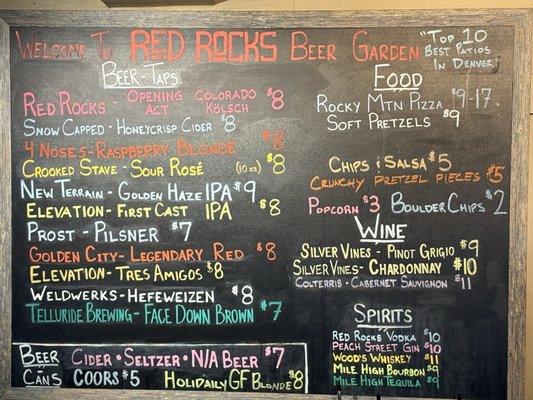 Welcome To RED ROCKS Beer Garden "Top 10
Best Patios
In Denver"
Beer-Taps
Red Rocks - Opening Act Colorado Kölsch $8
Snow Capped - Honeycrisp Cider $8
4 Noses - Raspberry Blonde $8
Crooked Stave - Sour Rosé (10oz) $8
New Terrain - Golden Haze IPA $9
Elevation - First Cast IPA $8
Prost - Pilsner $7
Golden City - Legendary Red $8
Elevation - Tres Amigos $8
Weldwerks - Hefeweizen $8
Telluride Brewing - Face Down Brown $7
Beer Cans
Cider • Seltzer • N/A Beer $7
Coors $5 Holidaily GF Blonde $8
Food
Rocky Mtn Pizza $9-17
Soft Pretzels $9
Chips & Salsa $5
Crunchy Pretzel Pieces $5
Popcorn $3 Boulder Chips $2
Wine
Silver Vines - Pinot Grigio $9
Silver Vines - Chardonnay $10
Colterris - Cabernet Sauvignon $11
Spirits
Red Rocks Vodka $10
Peach Street Gin $10
Wood's Whiskey $11
Mile High Bourbon $9
Mile High Tequila $9